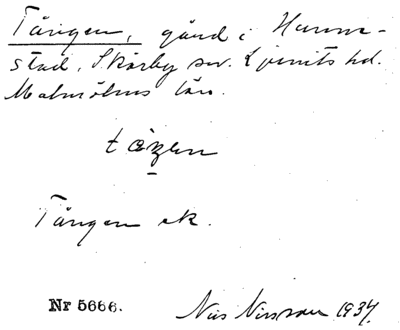 Tången, gård i Hunne-
stad, Skårby sn. Ljunits hd.
Malmöhus län.
Tången ek.
Nr 5666. Nils Nilsson 1934.